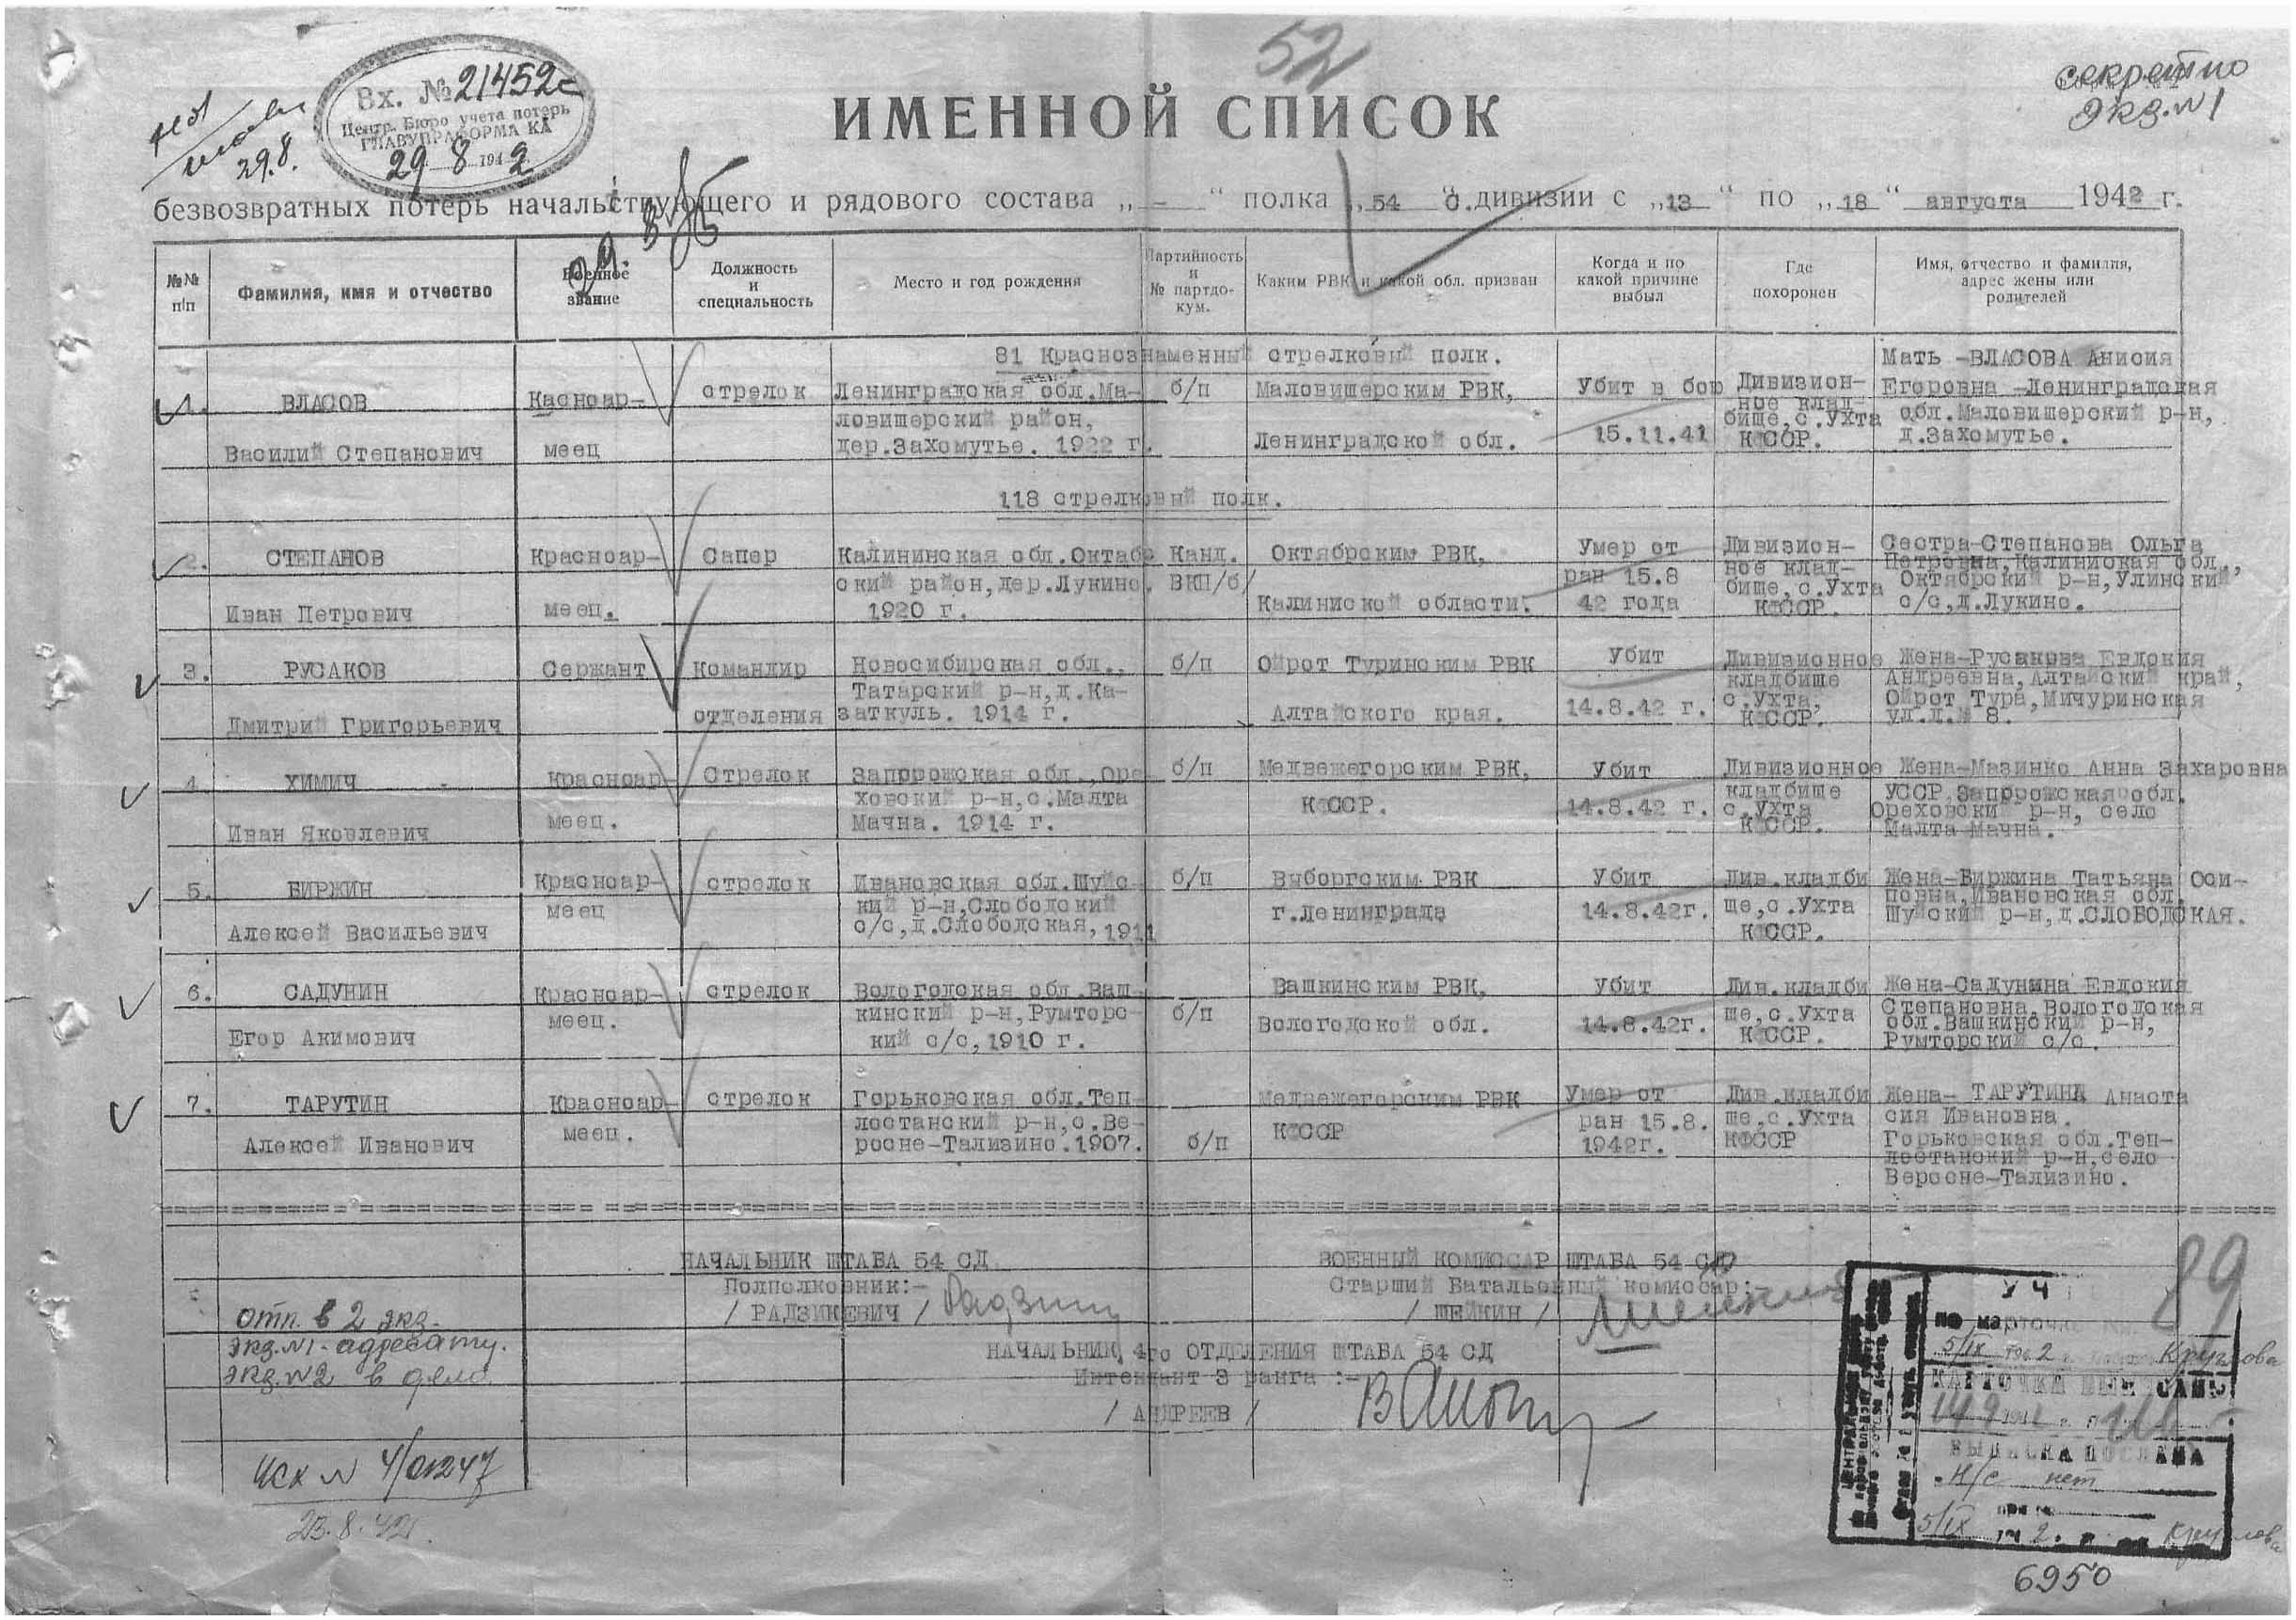 52
секретно
экз.№1
Вх. №21452с
Центр. Бюро учета потерь
ГЛАВУПРАФОРМА КА
29 8 1942
29.8.
ИМЕННОЙ СПИСОК
безвозвратных потерь начальствующего и рядового состава „ - “ полка „ 54 “ с. дивизии с „13 “ по „18 “ августа 1942 г.
№№ п/п
Фамилия, имя и отчество
Военное звание
Должность и специальность
Место и год рождения
Партийность и № партдокум.
Каким РВК и какой обл. призван
Когда и по какой причине выбыл
Где похоронен
Имя, отчество и фамилия, адрес жены или родителей
81 Краснознаменный стрелковый полк.
1. ВЛАСОВ Василий Степанович
Касноар-
меец
стрелок
Ленинградская обл.Ма-
ловишерский район,
дер.Захомутье. 1922 г.
б/п
Маловишерским РВК,
Ленинградской обл.
Убит в бою
15.11.41
Дивизион-
ное клад-
бище,с.Ухта
КФССР.
Мать -ВЛАСОВА Анисия
Егоровна -Ленинградская
обл.Маловишерский р-н,
д.Захомутье.
118 стрелковый полк.
2. СТЕПАНОВ Иван Петрович
Красноар-
меец.
Сапер
Калининская обл.Октябр
ский район,дер.Лукино.
1920 г.
Канд.
ВКП/б/
Октябрским РВК,
Калиниской области.
Умер от
ран 15.8
42 года
Дивизион-
ное клад-
бище,с.Ухта
КФССР.
Сестра-Степанова Ольга
Петровна,Калиниская обл.,
Октябрский р-н,Улинский
с/с,д.Лукино.
3. РУСАКОВ Дмитрий Григорьевич
Сержант
Командир
отделения
Новосибирская обл.,
Татарский р-н,д.Ка-
заткуль. 1914 г.
б/п
Ойрот Туринским РВК
Алтайского края.
Убит
14.8.42 г.
Дивизионное
кладбище
с.Ухта,
КФССР.
Жена-Русакова Евдокия
Андреевна,Алтайский край,
Ойрот Тура,Мичуринская
ул.д.№ 8.
4. ХИМИЧ Иван Яковлевич
Красноар-
меец.
Стрелок
Запорожская обл.,Оре-
ховский р-н,с.Малта
Мачна. 1914 г.
б/п
Медвежегорским РВК,
КФССР.
Убит
14.8.42 г.
Дивизионное
кладбище
с.Ухта
КФССР.
Жена-Мазинко Анна Захаровна
УССР,Запорожская обл.
Ореховский р-н, село
Малта Мачна.
5. БИРЖИН Алексей Васильевич
Красноар-
меец
стрелок
Ивановская обл.Шуйс-
кий р-н,Слободский
с/с,д.Слободская,1911
б/п
Выборгским РВК
г.Ленинграда
Убит
14.8.42г.
Див.кладби
ще,с.Ухта
КФССР.
Жена-Биржина Татьяна Оси-
повна,Ивановская обл.
Шуйский р-н,д.СЛОБОДСКАЯ.
6. САДУНИН Егор Акимович
Красноар-
меец.
стрелок
Вологодская обл.Ваш-
кинский р-н,Румторс-
кий с/с,1910 г.
б/п
Вашкинским РВК,
Вологодской обл.
Убит
14.8.42г.
Див.кладби
ще,с.Ухта
КФССР.
Жена-Садунина Евдокия
Степановна,Вологодская
обл.Вашкинский р-н,
Румторский с/с.
7. ТАРУТИН Алексей Иванович
Красноар-
меец.
стрелок
Горьковская обл.Теп-
лостанский р-н,с.Ве-
росне-Тализино.1907.
б/п
Медвежегорским РВК
КФССР
Умер от
ран 15.8.
1942г.
Див.кладби
ще,с.Ухта
КФССР
Жена- ТАРУТИНА Анаста
сия Ивановна.
Горьковская обл.Теп-
лостанский р-н,село
Веросне-Тализино.
НАЧАЛЬНИК ШТАБА 54 СД
Подполковник:-
/ РАДЗИКЕВИЧ /
ВОЕННЫЙ КОМИССАР ШТАБА 54 СД
Старший Батальонный комиссар:-
/ ШЕЙКИН /
НАЧАЛЬНИК 4го ОТДЕЛЕНИЯ ШТАБА 54 СД
Интендант 3 ранга :-
/ АНДРЕЕВ /
отп. в 2 экз.
экз.№1-адресату.
экз.№2 в дело
исх № 4/01247
23.8.42г.
89
УЧ
по карточке
5/IX 2 Круглова
КАРТОЧКИ ВЫПИСАНЫ
ВЫПИСКА ПОСЛАНА
н/с нет
5/IX 2. Круглова
6950